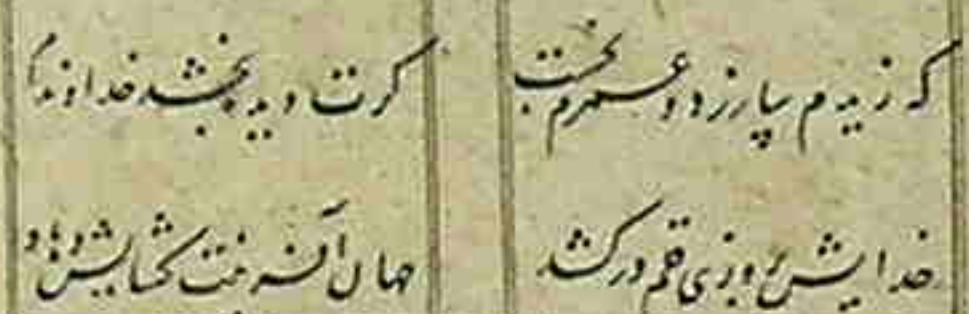 که زیدم بیازرد و عمرم بخست
کرت دیده بخشد خداوند امر
خدایش بروزی قلم درکشد
جهان آفرینت کشایش دهاد